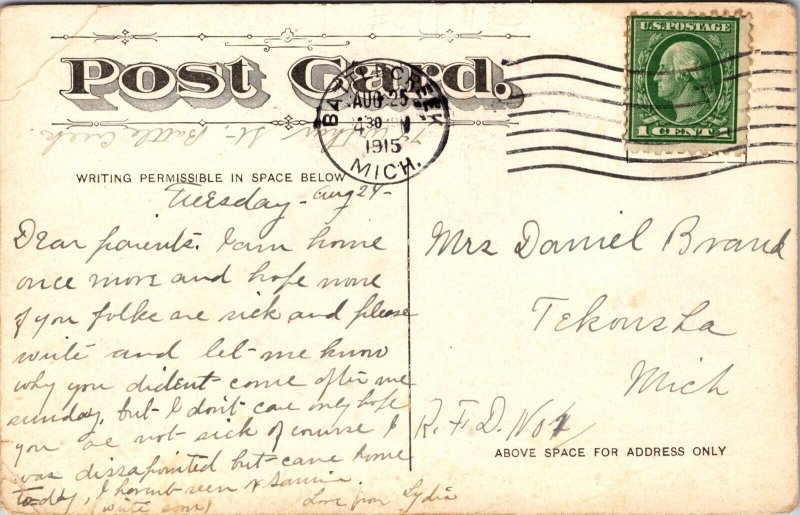 Post Card.
U.S. POSTAGE
1 CENT 1
BATTLE CREEK,
AUG 25
430 PM
1915
MICH.
St. Battle Creek.
WRITING PERMISSIBLE IN SPACE BELOW
Tuesday - Aug 24 -
Dear parents. I am home
once more and hope none
of you folks are sick and please
write and let me know
why you dident come after me
sunday, but I don't care only hope
you are not sick of course I
was dissapointed but came home
to-day, I havent seen
(write soon) Love from Lydia
Mrs Daniel Brand
Tekonsha
Mich
R. F. D. No 1
ABOVE SPACE FOR ADDRESS ONLY